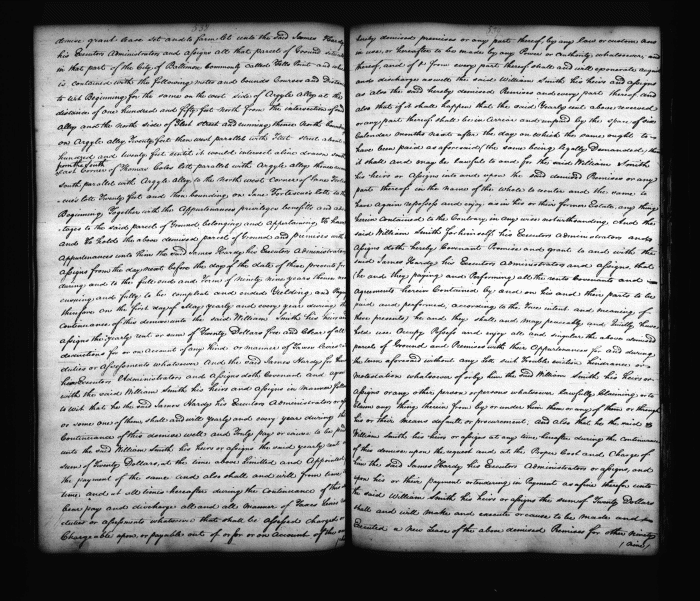 demise grant lease set and to farm let unto the said James Hardy
his Executors Administrators and assigns all that parcel of Ground situate
in that part of the City of Baltimore Commonly called Fells Point and which
is contained within the following metes and bounds Courses and Distances
to wit Beginning for the same on the west side of Argyle alley at the
distance of one hundred and fifty feet North from the intersection of said
alley and the North side of Fleet street and running thence North bounding
on Argyle alley Twenty feet then west parallel with Fleet street about
hundred and twenty feet until it would intersect a line drawn
from the South
east corner of Thomas Coles lots parallel with Argyle alley thence
South parallel with Argyle alley to the North west corner of Jane
lots Twenty feet and then bounding on Jane lots to the
Beginning Together with the Appurtenances privileges benefits and advan
tages to the said parcel of Ground belonging and appertaining To have
and To hold the above demised parcel of Ground and premises with the
Appurtenances unto him the said James Hardy his Executors Administrators
assigns from the day next before the day of the date of these presents for
during and to the full end and term of Ninety nine years thence next
ensuing and fully to be complete and ended Yielding and Paying
therefor on the first day of alley yearly and every year during the
Continuance of this demise unto the said William Smith his heirs and
assigns the yearly rent or sum of Twenty Dollars free and Clear of all
deductions for or on account of any kind or manner of Taxes Cesses
duties or assessments whatsoever And the said James Hardy for himself
his Executors Administrators and assigns doth Covenant and agree
with the said William Smith his heirs and assigns in manner following
to wit that he the said James Hardy his Executors Administrators or assigns
or some one of them shall and will yearly and every year during the
Continuance of this demise well and truly pay or cause to be paid
unto the said William Smith his heirs or assigns the said yearly rent or
sum of Twenty Dollars at the time above limited and Appointed for
the payment of the same and also shall and will from time to
time and at all times hereafter during the Continuance of this demise
bear pay and discharge all and all manner of Taxes Cesses
duties or assessments whatsoever that shall be assessed charged or
Chargeable upon or payable out of or for or on account of the
hereby demised premises or any part thereof by any law or custom now
in use or hereafter to be made by any Power or Authority whatsoever and
thereof and of & from every part thereof shall and will exonerate acquit
and discharge as well the said William Smith his heirs and assigns
as also the said hereby demised Premises and every part thereof And
also that if it shall happen that the said Yearly rent above reserved
or any part thereof shall be in arrear and unpaid by the space of six
Calendar months next after the day on which the same ought to
have been paid as aforesaid (the same being legally Demanded) then
it shall and may be lawful to and for the said William Smith
his heirs or assigns into and upon the said demised Premises or any
part thereof in the name of the whole to reenter and the same to
have again repossess and enjoy as in his or their former Estate any thing
herein contained to the Contrary in any wise notwithstanding And the
said William Smith for himself his Executors Administrators and
assigns doth hereby Covenant Promise and grant to and with the
said James Hardy his Executors Administrators and assigns that
(he and they paying and Performing all the rents Covenants and
agreements herein Contained by and on his and their parts to be
paid and performed according to the true intent and meaning of
these presents) he and they shall and may peaceably and Quietly have
hold use Occupy Possess and enjoy all and singular the above demised
parcel of Ground and Premises with their Appurtenances for and during
the term aforesaid without any let suit trouble eviction hindrance or
molestation whatsoever of or by him the said William Smith his heirs or
assigns or any other person or persons whatsoever lawfully claiming or to
claim any thing therein from by or under him them or any of them or through
his or their means default or procurement, and also that he the said
William Smith his heirs or assigns at any time hereafter during the Continuance
of this demise upon the request and at the Proper Cost and Charges of
him the said James Hardy his Executors Administrators or assigns, and
upon his or their payment or tendering in Payment as a fine therefor unto
the said William Smith his heirs or assigns the sum of Twenty Dollars
shall and will make and execute or cause to be made and
Executed a New Lease of the above demised Premises for other Ninety
(nine)